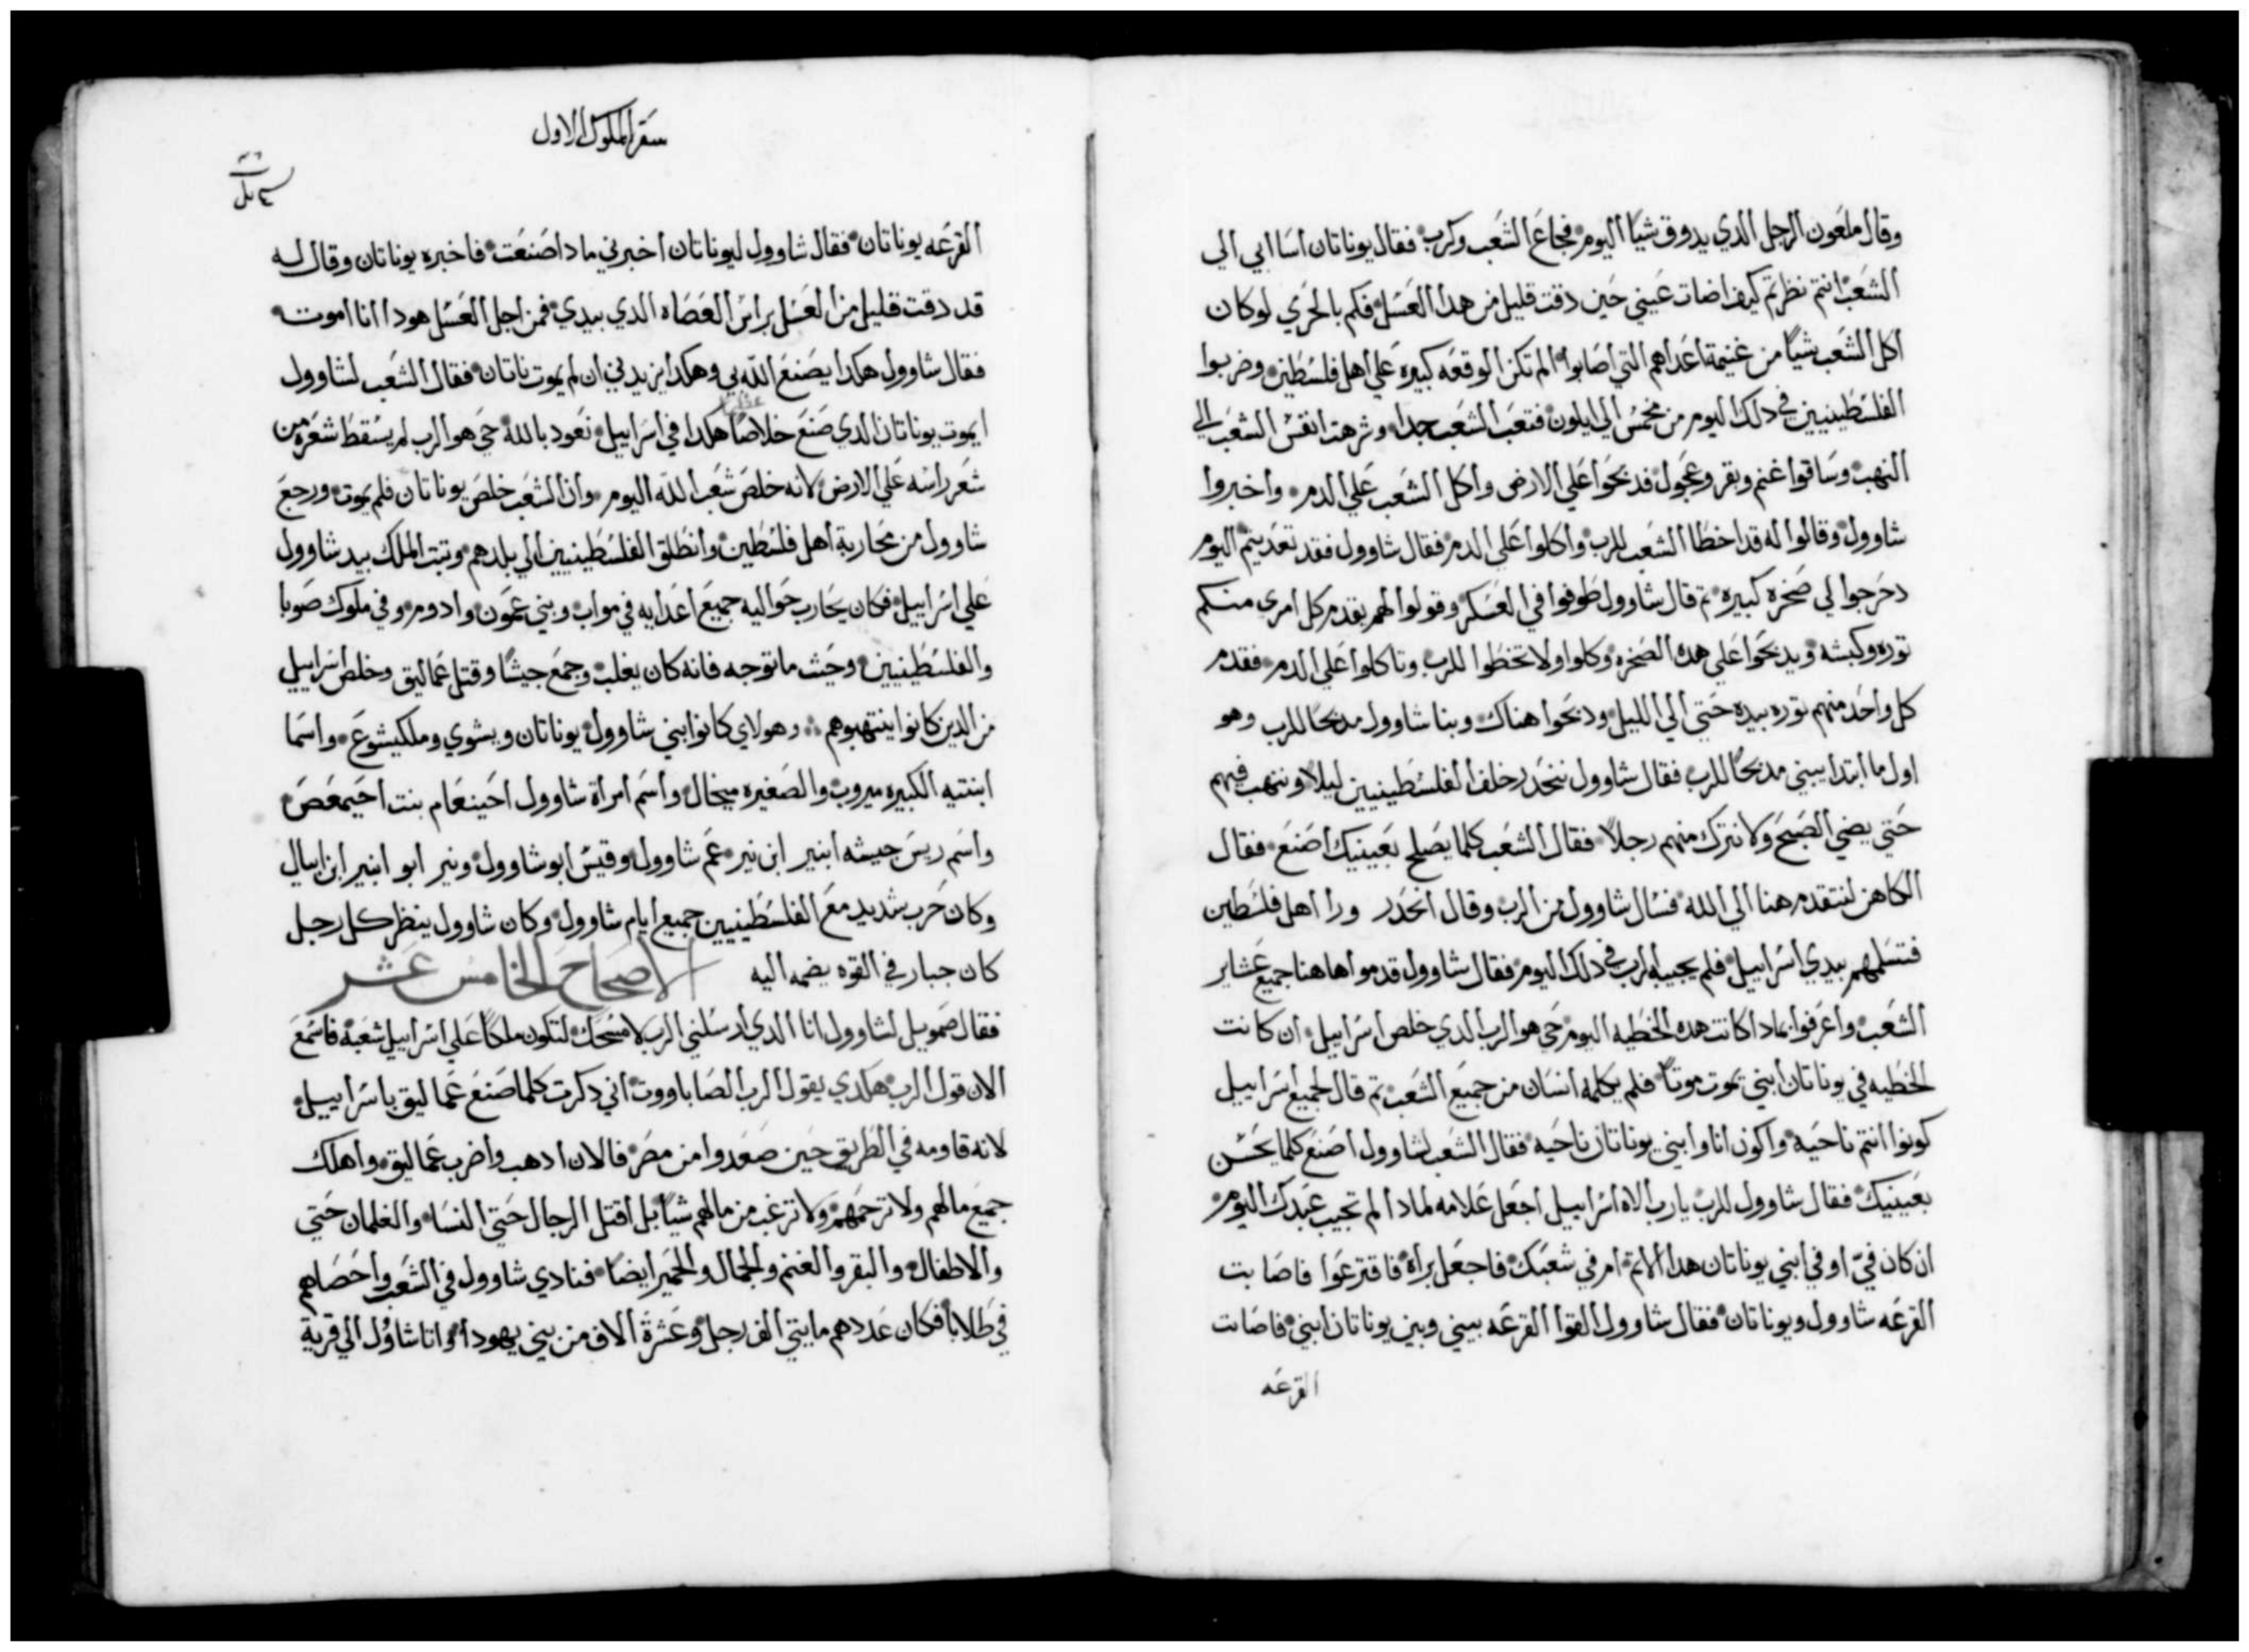 وقال ملعون الرجل الدي يدوق شيا اليوم فجاع الشعب وكرب فقال يوناتان اسا ابي الي
الشعب انتم نظرتم كيف اضات عيني حين دقت قليل من هدا العسل فكم بالحري لو كان
اكل الشعب شيا من غنيمة اعداهم التي اصابوا الم تكن الوقعه كبيره علي اهل فلسطين وضربوا
الفلسطينيين في دلك اليوم من مخمس الي ايلون فتعب الشعب جدا وشرهت انفس الشعب الي
النهب وساقوا غنم وبقر وعجول فدبحوا علي الارض واكل الشعب علي الدم واخبروا
شاوول وقالوا له قد اخطا الشعب للرب واكلوا علي الدم فقال شاوول فقد تعديتم اليوم
دحرجوا لي صخره كبيره تم قال شاوول طوفوا في العسكر وقولوا لهم يقدم كل امري منكم
توره وكبشه ويدبحوا علي هده الصخره وكلوا ولا تخطوا للرب وتاكلوا علي الدم فقدم
كل واحد منهم توره بيده حتي الي الليل ودبحوا هناك وبنا شاوول مدبحا للرب وهو
اول ما ابتدا يبني مدبحا للرب فقال شاوول ننحدر خلف الفلسطينيين ليلا وننهب فيهم
حتي يضي الصبح ولا نترك منهم رجلا فقال الشعب كلما يصلح بعينيك اصنع فقال
الكاهن لنتقدم هنا الي الله فسال شاوول من الرب وقال انحدر ورا اهل فلسطين
فتسلمهم بيدي اسراييل فلم يجيبه الرب في دلك اليوم فقال شاوول قدموا هاهنا جميع عشاير
الشعب واعرفوا بمادا كانت هده الخطيه اليوم حي هو الرب الدي خلص اسراييل ان كانت
الخطيه في يوناتان ابني يموت موتا فلم يكلمه انسان من جميع الشعب تم قال لجميع اسراييل
كونوا انتم ناحيه واكون انا وابني يوناتان ناحيه فقال الشعب لشاوول اصنع كلما يحسن
بعينيك فقال شاوول للرب يارب الاه اسراييل اجعل علامه لمادا لم تجيب عبدك اليوم
ان كان في او في ابني يوناتان هدا الاتم ام في شعبك فاجعل براة فاقترعوا فاصابت
القرعه شاوول ويوناتان فقال شاوول القوا القرعه بيني وبين يوناتان ابني فاصابت
القرعه
سفر الملوك الاول
القرعه يوناتان فقال شاوول ليوناتان اخبرني مادا صنعت فاخبره يوناتان وقال له
قد دقت قليل من العسل براس العصاه الدي بيدي فمن اجل العسل هودا انا اموت
فقال شاوول هكدا يصنع الله بي وهكدا يزيدني ان لم يموت ناتان فقال الشعب لشاوول
ايموت يوناتان الدي صنع خلاصا هكدا في اسراييل نعود بالله حي هو الرب لم يسقط شعره من
شعر راسه علي الارض لانه خلص شعب الله اليوم وان الشعب خلص يوناتان فلم يموت ورجع
شاوول من محاربة اهل فلسطين وانطلق الفلسطينيين الي بلدهم وتبت الملك بيد شاوول
علي اسراييل فكان يحارب حواليه جميع اعدايه في مواب وبني عمون وادوم وفي ملوك صوبا
والفلسطينيين وحيت ما توجه فانه كان يغلب وجمع جيشا وقتل عماليق وخلص اسراييل
من الدين كانوا ينتهبوهم وهولاي كانوا ابني شاوول يوناتان ويشوي وملكيشوع واسما
ابنتيه الكبيره ميروب والصغيره ميخال واسم امراة شاوول احينعام بنت احيمعص
واسم ريس جيشه ابنير ابن نير عم شاوول وقيس ابو شاوول ونير ابو ابنير ابن ابيال
وكان حرب شديد مع الفلسطينيين جميع ايام شاوول وكان شاوول ينظر كل رجل
كان جبار في القوه يضمه اليه الاصحاح الخامس عشر
فقال صمويل لشاوول انا الدي ارسلني الرب لامسحك لتكون ملكا علي اسراييل شعبه فاسمع
الان قول الرب هكدي يقول الرب الصاباووت اني دكرت كلما صنع عماليق باسراييل
لانه قاومه في الطريق حين صعدوا من مصر فالان ادهب واضرب عماليق واهلك
جميع مالهم ولا ترحمهم ولا ترغب من مالهم شيا بل اقتل الرجال حتي النسا والغلمان حتي
والاطفال والبقر والغنم والجمال والحمير ايضا فنادي شاوول في الشعب واحصاهم
في طلابا فكان عددهم مايتي الف رجل وعشرة الاف من بني يهودا واتا شاوُل الي قرية